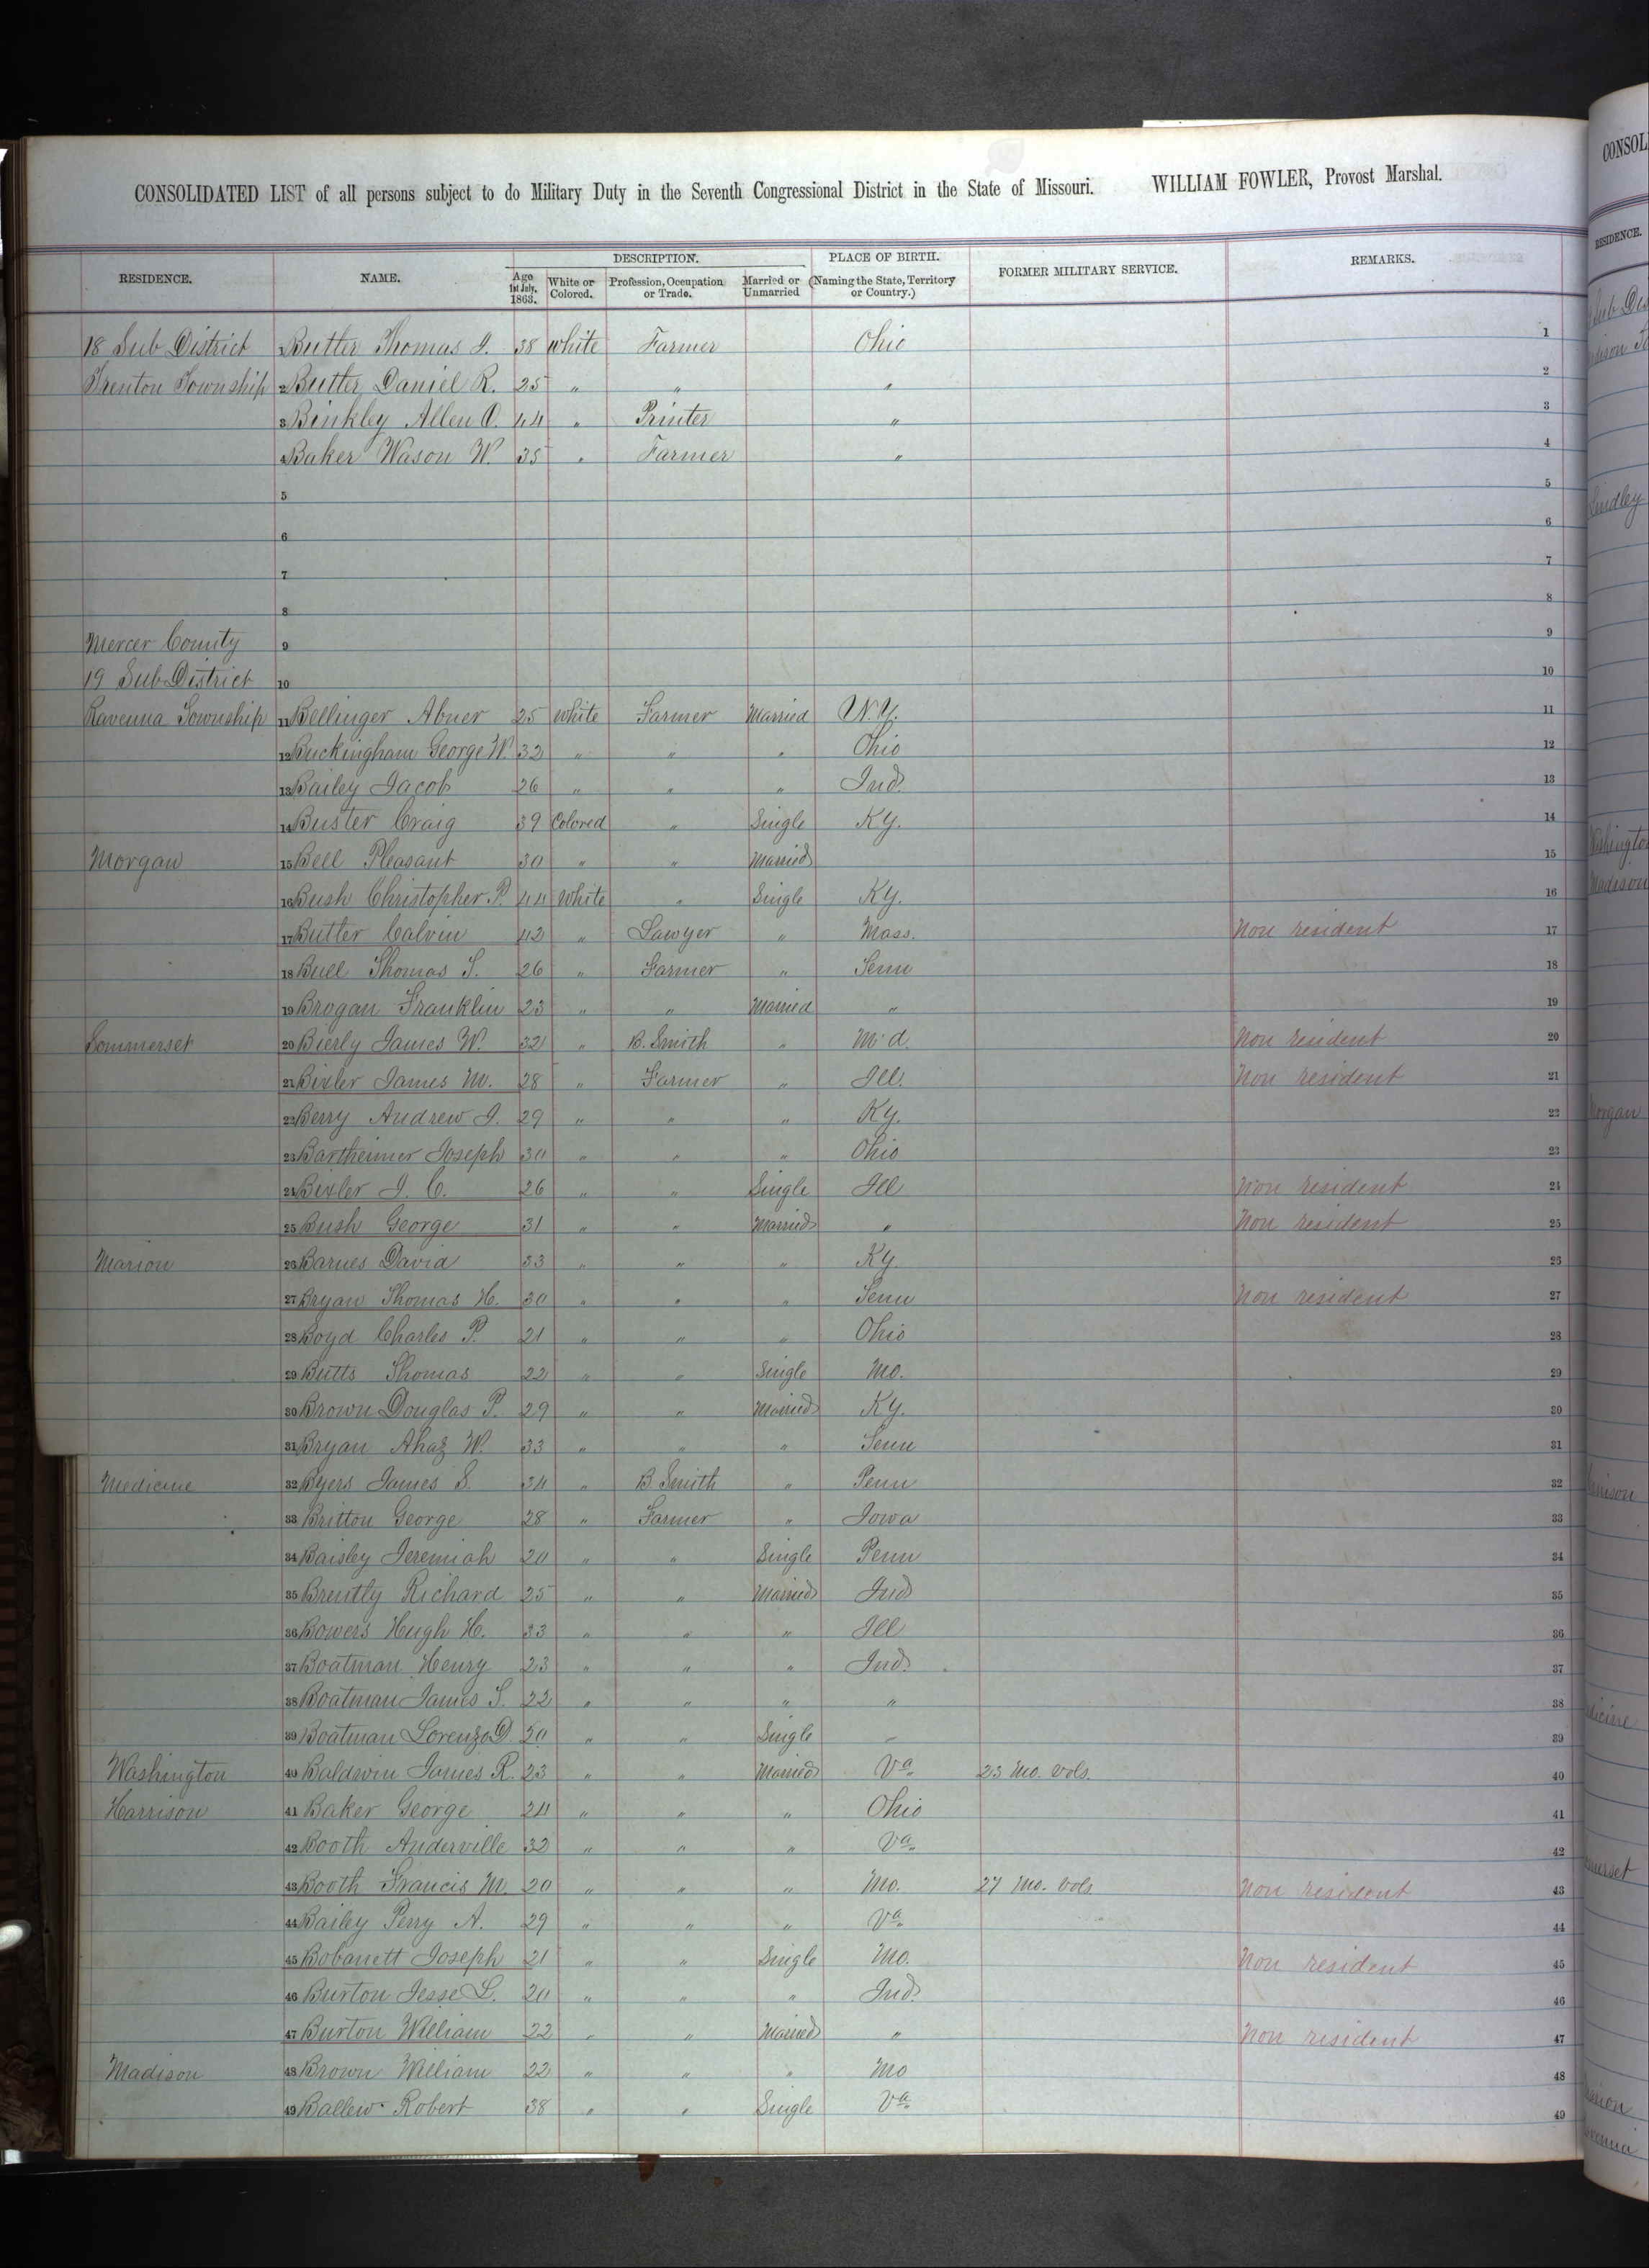 CONSOLIDATED LIST of all persons subject to do Military Duty in the Seventh Congressional District in the State of Missouri. WILLIAM FOWLER, Provost Marshal.
DESCRIPTION. PLACE OF BIRTH.
RESIDENCE. NAME. Age 1st July, 1863. White or Colored. Profession, Occupation or Trade. Married or Unmarried (Naming the State, Territory or Country.) FORMER MILITARY SERVICE. REMARKS.
18 Sub District 1 Butler Thomas J. 38 White Farmer Ohio 1
Trenton Township 2 Butler Daniel R. 25 " " " 2
3 Binkley Allen O. 44 " Printer " 3
4 Baker Wason W. 35 " Farmer " 4
5 5
6 6
7 7
8 8
Mercer County 9 9
19 Sub District 10 10
Ravenna Township 11 Bellinger Abner 25 White Farmer Married N.Y. 11
12 Buckingham George W. 32 " " " Ohio 12
13 Bailey Jacob 26 " " " Ind. 13
14 Buster Craig 39 Colored " Single Ky. 14
Morgan 15 Bell Pleasant 30 " " Married 15
16 Bush Christopher P. 44 White " Single Ky. 16
17 Butler Calvin 42 " Lawyer " Mass. Non resident 17
18 Buel Thomas S. 26 " Farmer " Tenn 18
19 Brogan Franklin 23 " " Married " 19
Sommerset 20 Bierly James W. 32 " B. Smith " Md. Non resident 20
21 Bixler James M. 28 " Farmer " Ill. Non resident 21
22 Berry Andrew J. 29 " " " Ky. 22
23 Bartheimer Joseph 30 " " " Ohio 23
24 Bixler J. C. 26 " " Single Ill Non resident 24
25 Bush George 31 " " Married " Non resident 25
Marion 26 Barnes David 33 " " " Ky. 26
27 Bryan Thomas H. 30 " " " Tenn Non resident 27
28 Boyd Charles P. 21 " " " Ohio 28
29 Butts Thomas 22 " " Single Mo. 29
30 Brown Douglas P. 29 " " Married Ky. 30
31 Bryan Ahaz W. 33 " " " Tenn 31
Medicine 32 Byers James S. 34 " B. Smith " Penn 32
33 Britton George 28 " Farmer " Iowa 33
34 Baisley Jeremiah 20 " " Single Penn 34
35 Brently Richard 25 " " Married Ind 35
36 Bowers Hugh H. 33 " " " Ill 36
37 Boatman Henry 23 " " " Ind. 37
38 Boatman James S. 22 " " " " 38
39 Boatman Lorenzo D. 20 " " Single " 39
Washington 40 Baldwin James R. 23 " " Married Va. 23 Mo. Vols. 40
Harrison 41 Baker George 24 " " " Ohio 41
42 Booth Anderville 32 " " " Va. 42
43 Booth Francis M. 20 " " " Mo. 27 Mo. Vols Non resident 43
44 Bailey Perry A. 29 " " " Va. 44
45 Bobanett Joseph 21 " " Single Mo. Non resident 45
46 Burton Jesse L. 20 " " " Ind. 46
47 Burton William 22 " " Married " Non resident 47
Madison 48 Brown William 22 " " " Mo 48
49 Ballew Robert 38 " " Single Va. 49